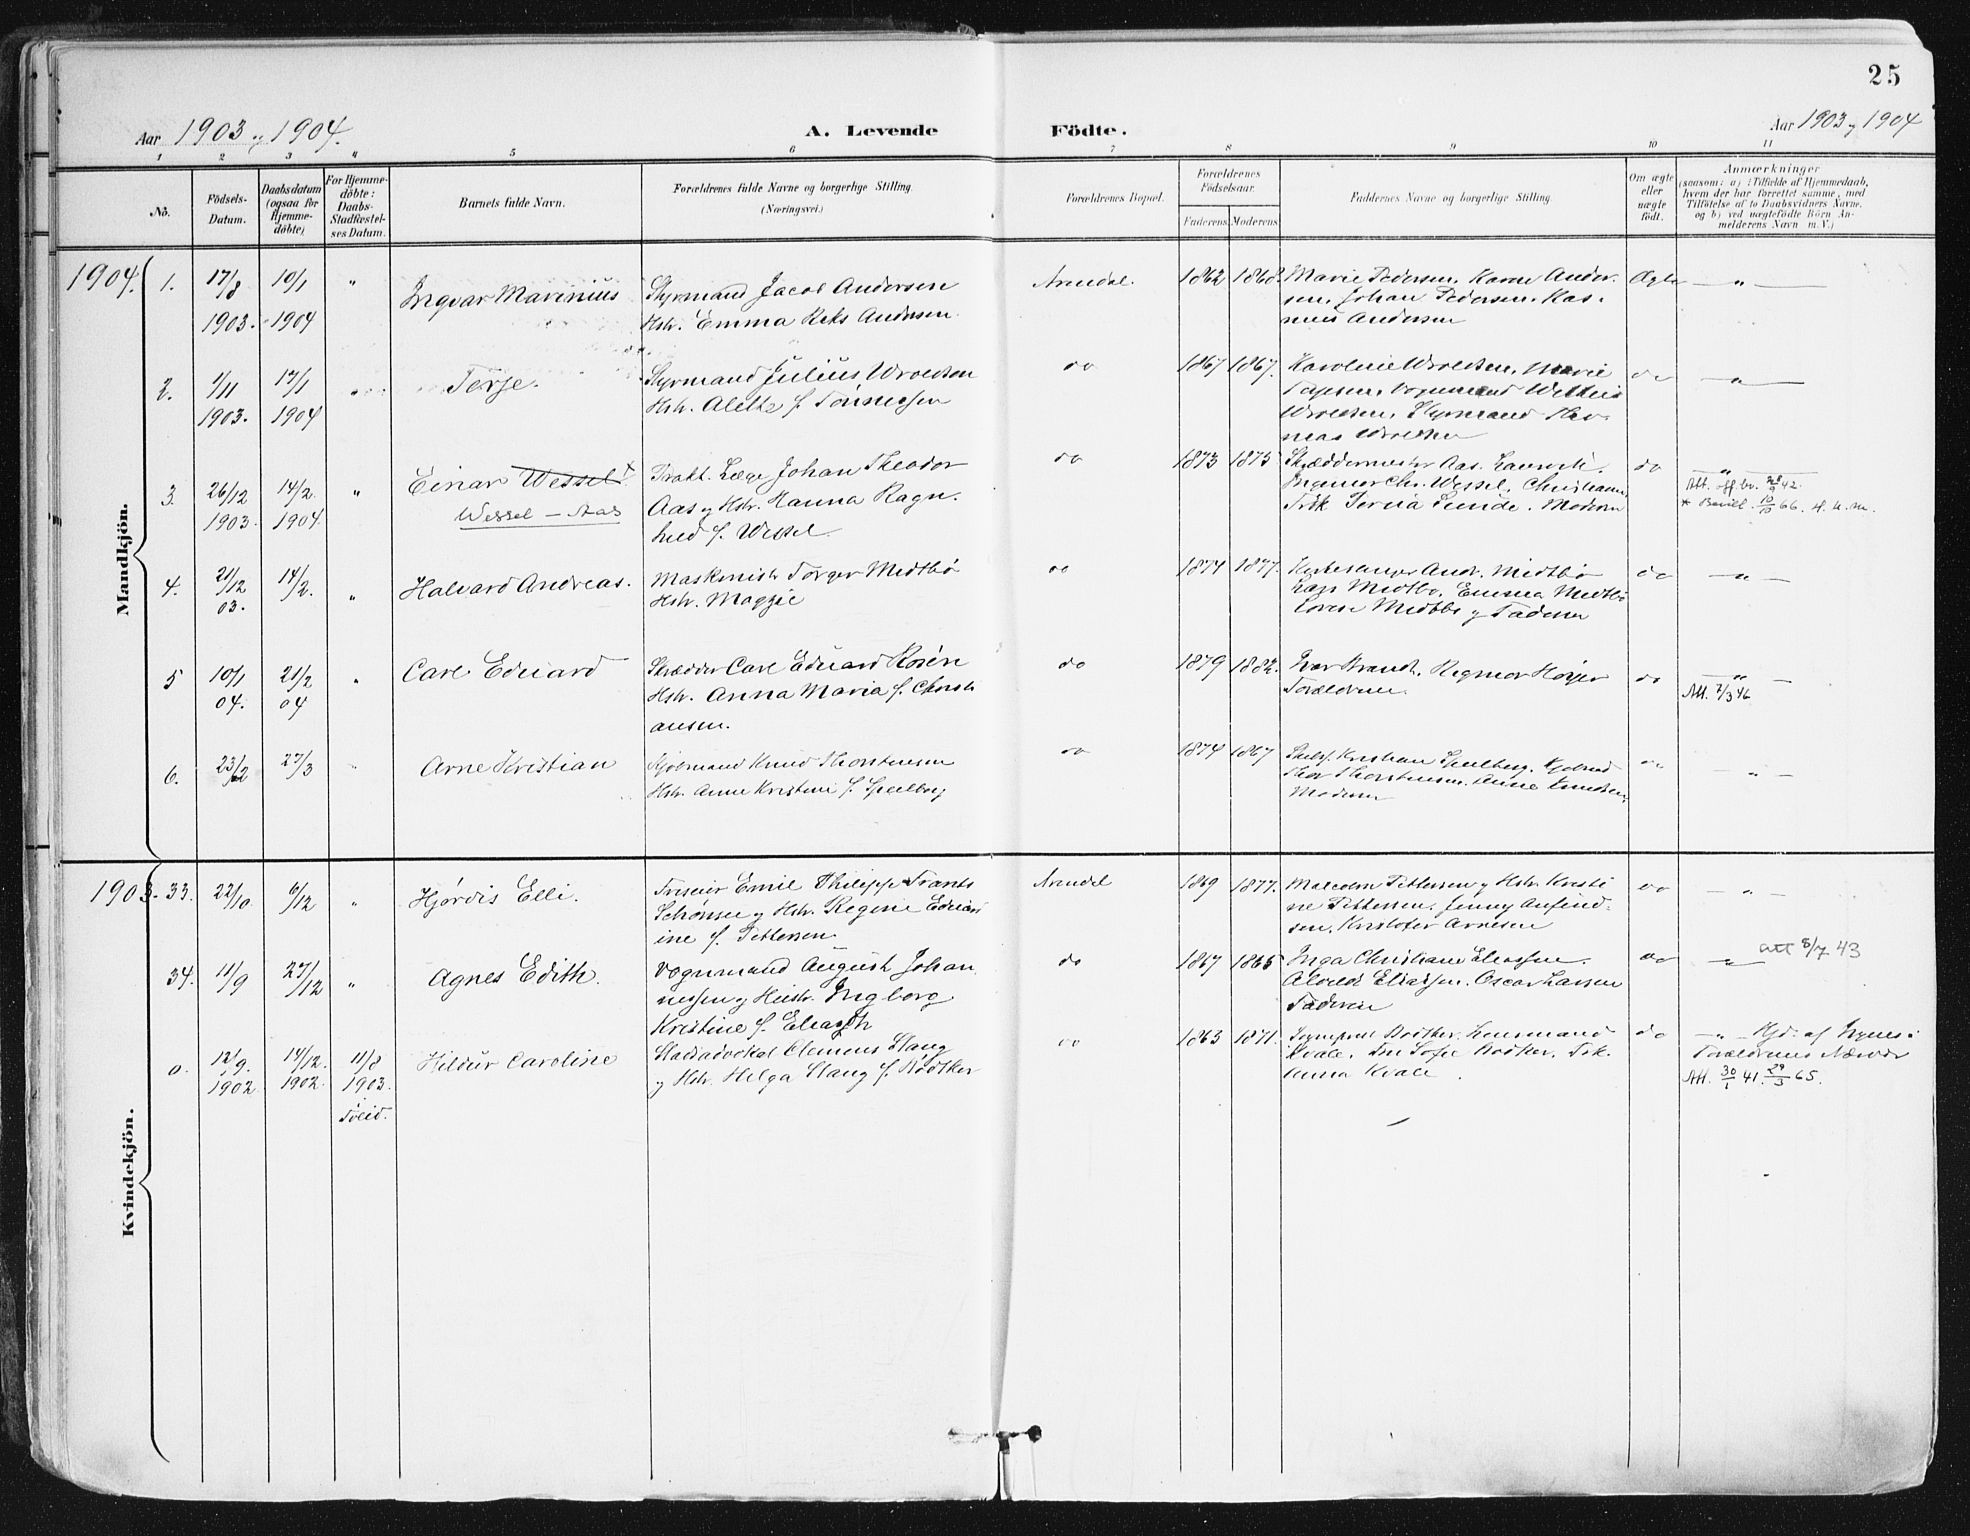 25
Aar 1903 og 1904.
A. Levende Födte.
Aar 1903 og 1904
1 2 3 4 5 6 7 8 9 10 11
No.
Födsels-Datum.
Daabsdatum (ogsaa for Hjemme-döbte)
For Hjemme-döbte: Daabs-Stadfæstel-ses Datum.
Barnets fulde Navn.
Forældrenes fulde Navne og borgerlige Stilling.
(Næringsvei.)
Forældrenes Bopæl.
Forældrenes Födselsaar.
Faderens Moderens
Faddernes Navne og borgerlige Stilling.
Om ægte eller uægte födt.
Anmærkninger
(saasom: a) i Tilfælde af Hjemmedaab,
hvem der har forrettet samme, med
Tilföielse af to Daabsvidners Navne.
og b) ved uægtefödte Börn An-
melderens Navn m. V.)
Mandkjön.
1904. 1. 17/8 1903. 10/1 1904 "
Ingvar Marinius
Styrmand Jacob Andersen
Hstr. Emma Andersen.
Arendal. 1862 1868.
Marie Pedersen, Karne Ander-
sen, Johan Pedersen, Ras-
mus Andersen
Ægte — " —
2. 1/11 1903. 17/1 1904 "
Terje.
Styrmand Julius Wroldsen
Hstr. Alette f. Tønnessen
do 1867 1867.
Karoline Wroldsen, Marie
Wroldsen, Styrmand
Wroldsen
do — " —
3. 26/12 1903. 14/2 1904. "
Einar Wessel
Wessel - Aas
Prakt. Læge Johan Theodor
Aas og Hstr. Hanna Ragn-
hild f. Wessel.
do 1873 1875
Skræddermester Aas,
Ingmar Chr. Wessel, Christiania
Frk. Lunde. Moderen
do "
Att. 42.
* Bevill. 10/10 66.
4. 21/12 03. 14/2. "
Halvard Andreas.
Maskinist Torger Midtbø
Hstr. Maggie
do 1874 1877.
Andr. Midtbø
Lars Midtbø, Emma Midtbø
Lovise Midtbø og Faderen
do — " —
5 10/1 04. 21/2 04 "
Carl Eduard
Skrædder Carl Eduard Rosén
Hstr. Anna Maria f. Christi
ansen.
do 1879 1882.
Ivar Strandt, Regmor Høyer
Forældrene.
do — " —
Att. 7/3 46
6. 23/12 27/3 "
Arne Kristian
Sjømand Knud Thorstensen
Hstr. Anne Kristine f. Speilberg
do 1874 1867
Kristian Speilberg,
Thor Thorstensen. Anne Knudsen,
Moderen
do — " —
Kvindekjön.
1903. 33. 22/10 6/12 "
Hjørdis Elli.
Friseur Emil Philipp Frants
Schønsee og Hstr. Regine Eduard
ine f. Pettersen.
Arendal 1869 1877.
Malcolm Pettersen og Hstr. Kristi
ne Pettersen, Jenny Anfind-
sen, Kristofer Arnesen
do — " —
34. 11/9 27/12 "
Agnes Edith.
Vognmand August Johan
nessen og Hustr. Ingborg
Kristine f. Eliassen
do 1867 1865
Inga Christiane Eliassen.
Eliassen. Oscar Larsen
Faderen
do — " —
att 8/7 43
0. 12/9. 1902 14/12. 1902. 11/8 1903. Tveid.
Hildur Caroline
Stadsadvokat Clemens Stang
og Hstr. Helga Stang f. Bødtker
do 1863 1871.
Bødtker, Lensmand
Kvale, Sofie Bødtker, Frk.
Anna Kvale.
do — " Hjd. af
Forældrenes Nærvær
Att. 30/1 41. 29/3 65.